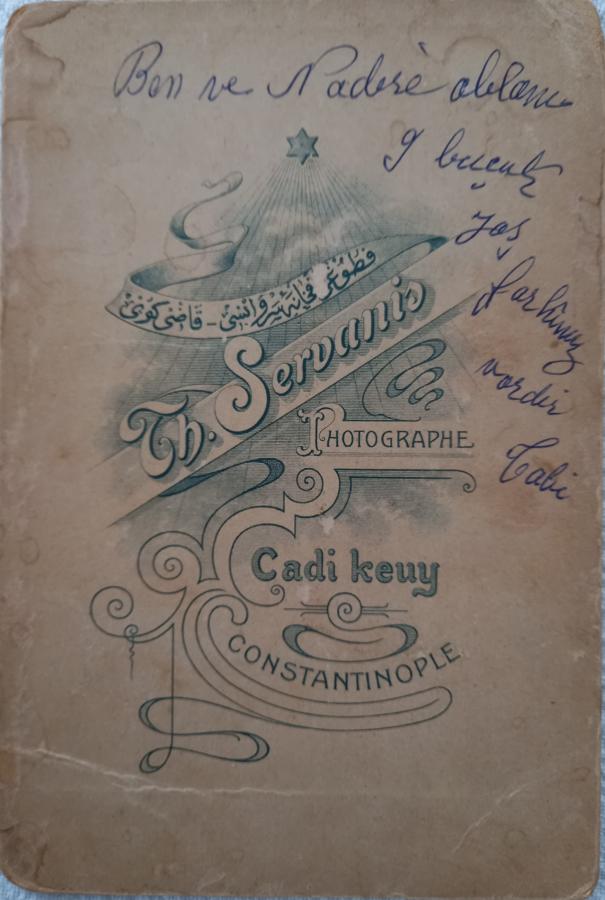 Ben ve Nadirè ablam
9 buçuk
yaş
farkımız
vardır
Tabi
فطوغرافخانه سروانيس - قاضى كوى
Th. Servanis
PHOTOGRAPHE
Cadi keuy
CONSTANTINOPLE